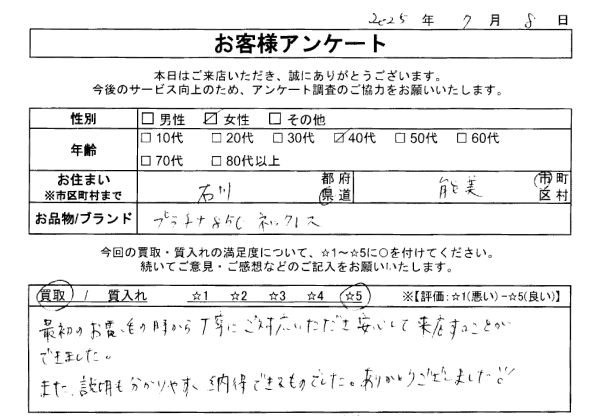 2025 年 7 月 8 日
お客様アンケート
本日はご来店いただき、誠にありがとうございます。
今後のサービス向上のため、アンケート調査のご協力をお願いいたします。
性別 □ 男性 ☑ 女性 □ その他
年齢 □ 10代 □ 20代 □ 30代 ☑ 40代 □ 50代 □ 60代
□ 70代 □ 80代以上
お住まい ※市区町村まで 石川 都府県道 能美 市町区村
お品物/ブランド プラチナ850 ネックレス
今回の買取・質入れの満足度について、☆1〜☆5に○を付けてください。
続いてご意見・ご感想などのご記入をお願いいたします。
買取 / 質入れ ☆1 ☆2 ☆3 ☆4 ☆5 ※【評価:☆1(悪い)−☆5(良い)】
最初のお電話の時から丁寧にご対応いただき安心して来店することが
できました。
また、説明も分かりやすく納得できるものでした。ありがとうございました